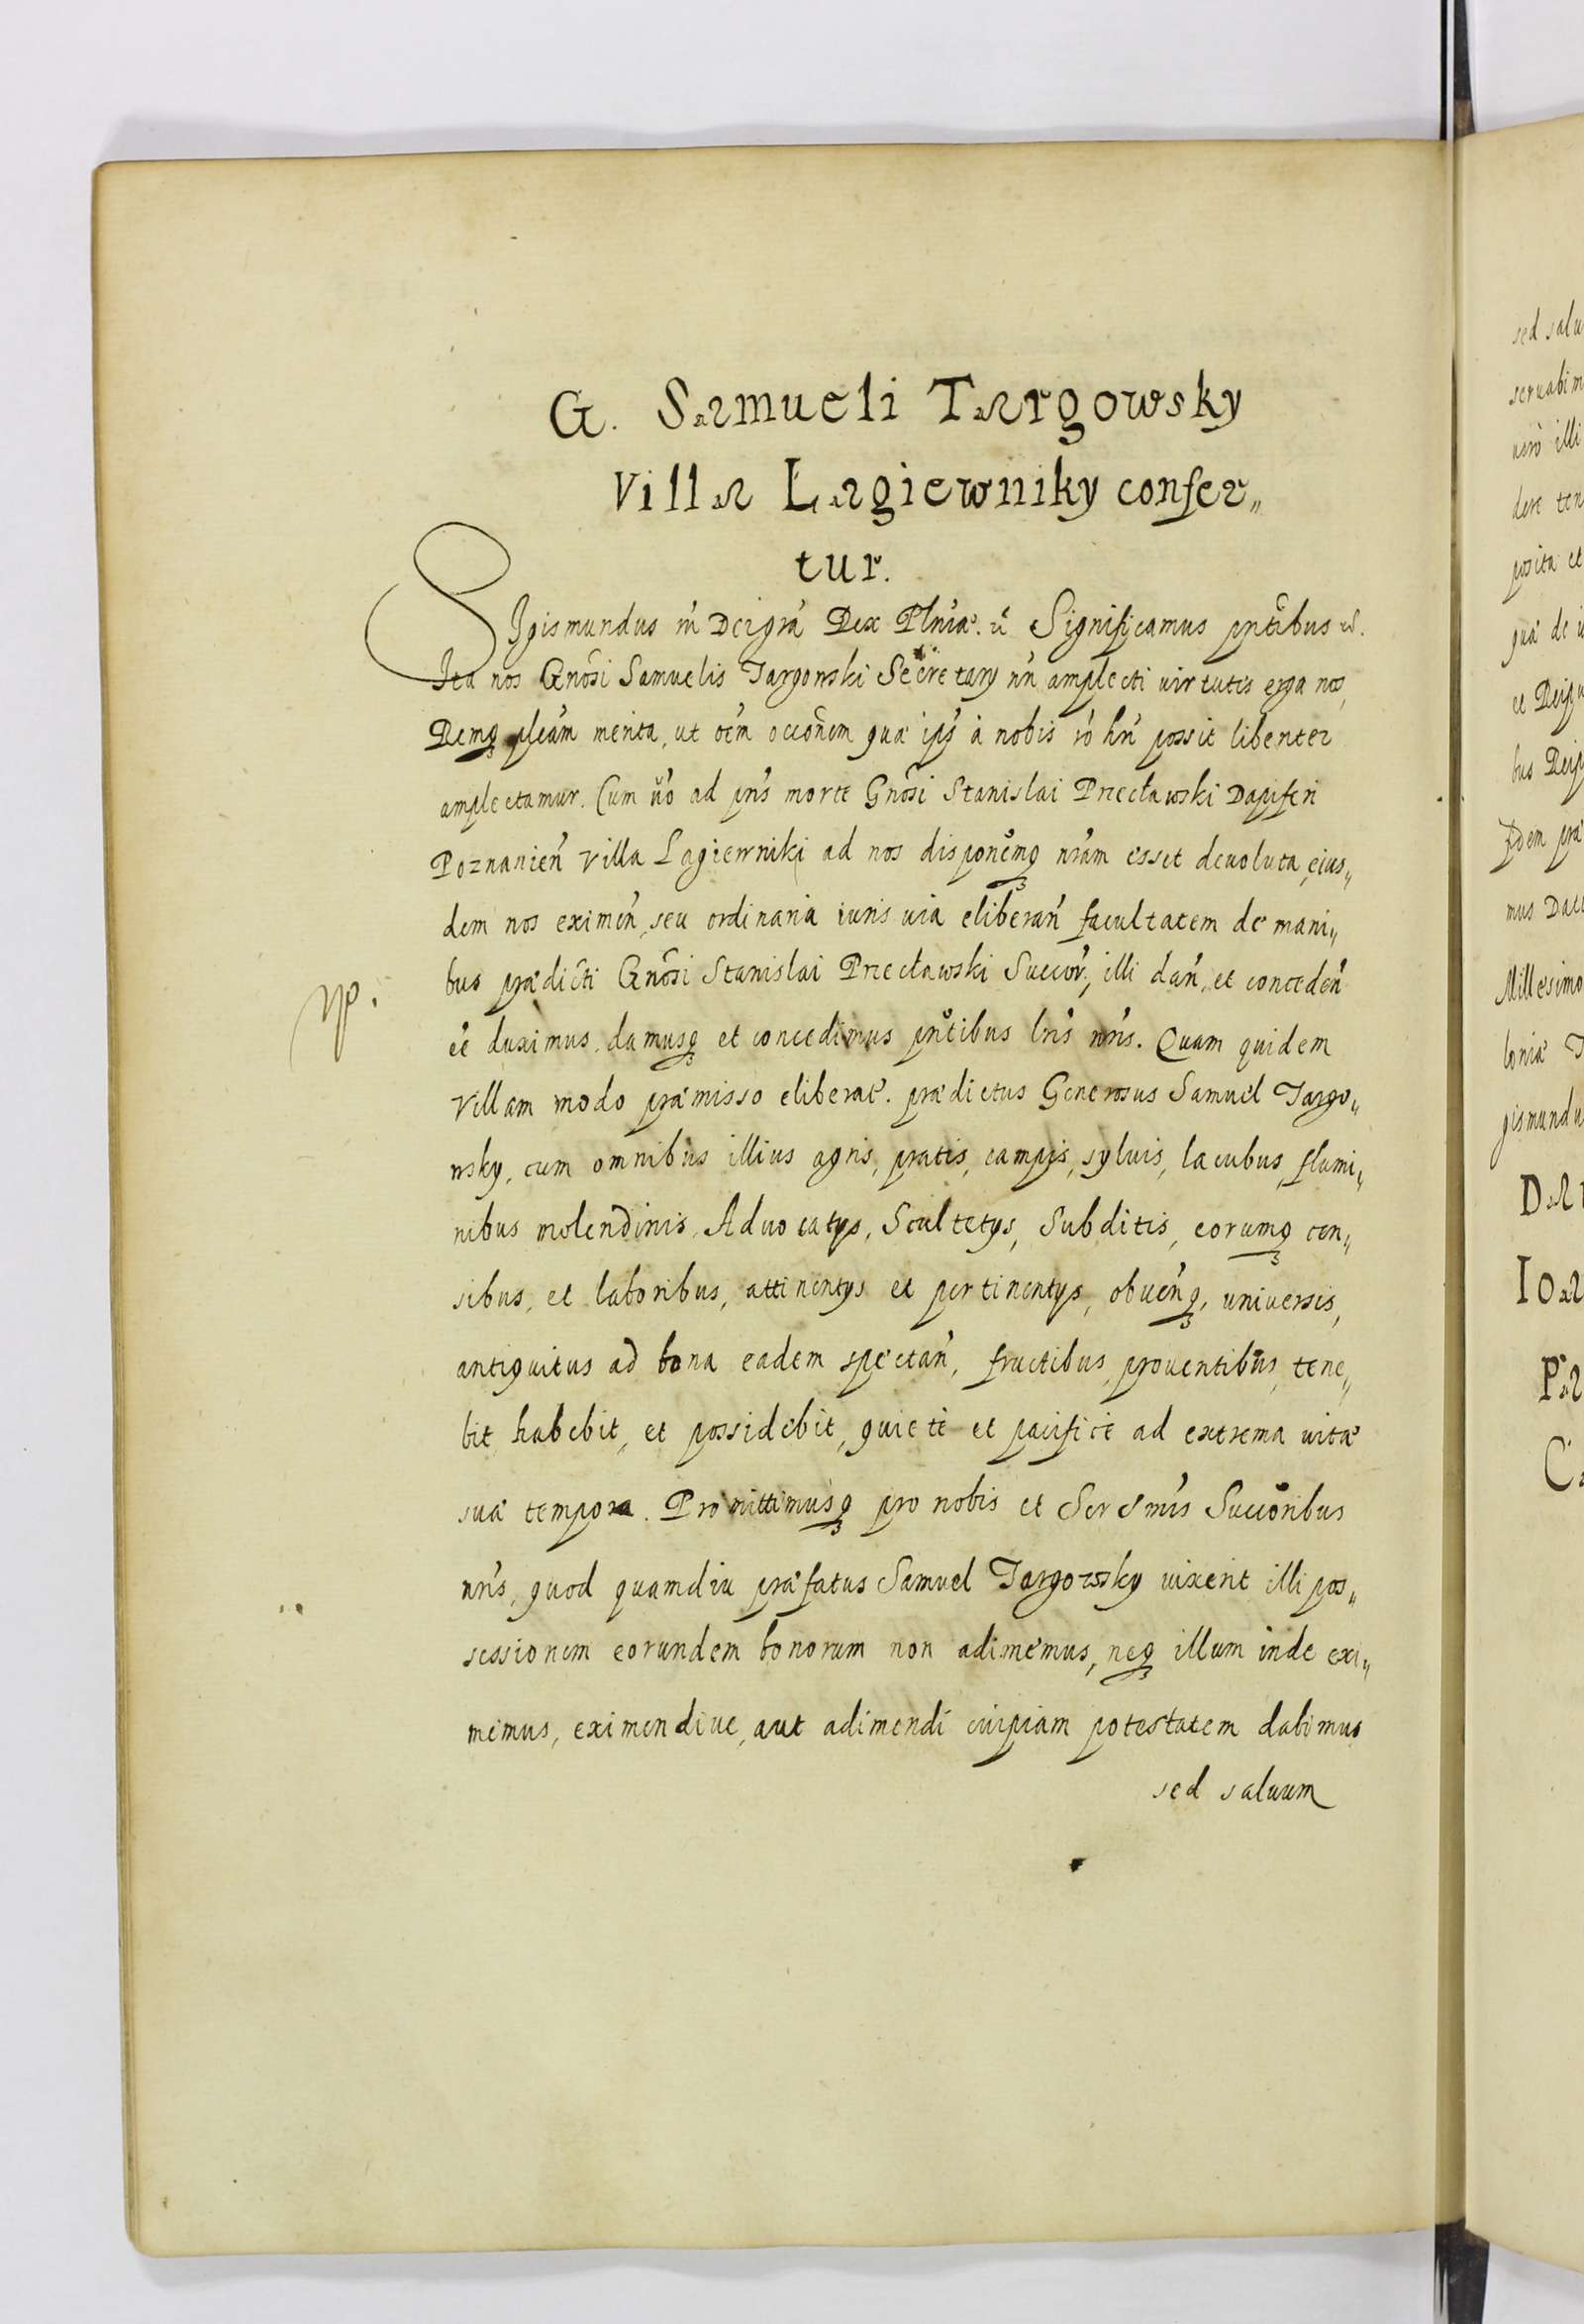 G. Samueli Targowsky
Villa Lagiewniky confer„
tur.
SIgismundus III Dei grã Rex Plniæ. Significamus pntibus
Ita nos Gnosi Samuelis Targowski Secretary nri amplecti virtutis erga nos,
Remq plcam merita, ut oem occonem qua ips à nobis hri possit libenter
amplectamur. Cum uo ad pns morte Gnosi Stanislai Przecławski Dapiferi
Poznanien Villa Lagiewniki ad nos disponemq nram esset deuoluta, eius„
dem nos eximen, seu ordinaria iuris uia eliberan facultatem de mani„
bus prædicti Gnosi Stanislai Przecławski Succor, illi dan, et conceden
ee duximus, damusq et concedimus pntibus lris nris. Quam quidem
Villam modo præmisso eliberat. prædictus Generosus Samuel Targo„
wsky, cum omnibus illius agris, pratis, campis, syluis, lacubus, flumi„
nibus molendinis, Aduocatys, Scultetys, Subditis, eorumq cen„
sibus, et laboribus, attinentys et pertinentys, obuenq, uniuersis,
antiquitus ad bona eadem spectan, fructibus, prouentibus, tene„
bit habebit, et possidebit, quietè et pacificè ad extrema uitæ
suæ tempora. Promittimusq pro nobis et Serenmis Succoribus
nris, quod quamdiu præfatus Samuel Targowsky uixerit illi pos„
sessionem eorundem bonorum non adimemus, neq illum inde exi„
memus, eximendiue, aut adimendi cuipiam potestatem dabimus
sed saluum
sed salu
seruabim
uerò illi
dere ten
posita et
qua de
et Reipu
bus Reip
fidem præ
mus Dat
Millesimo
loniæ
gismundu